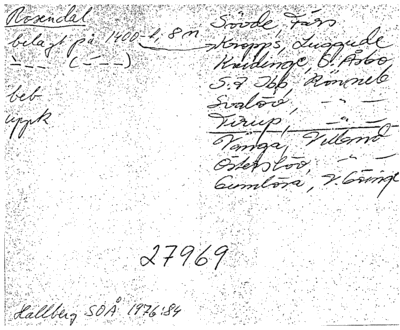 Rosendal
belagt på 1400-t, 8 n
beb
uppk
Sövde, Färs
Kropps, Luggude
Kvidinge, Ö. Åsbo
S:t Ibb, Rönneb
Svalöv, – " –
Tirup, – " –
Vånga, Villand
Österslöv, – " –
Gumlösa, V. Göinge
27969
Hallberg SOÅ 1976:84